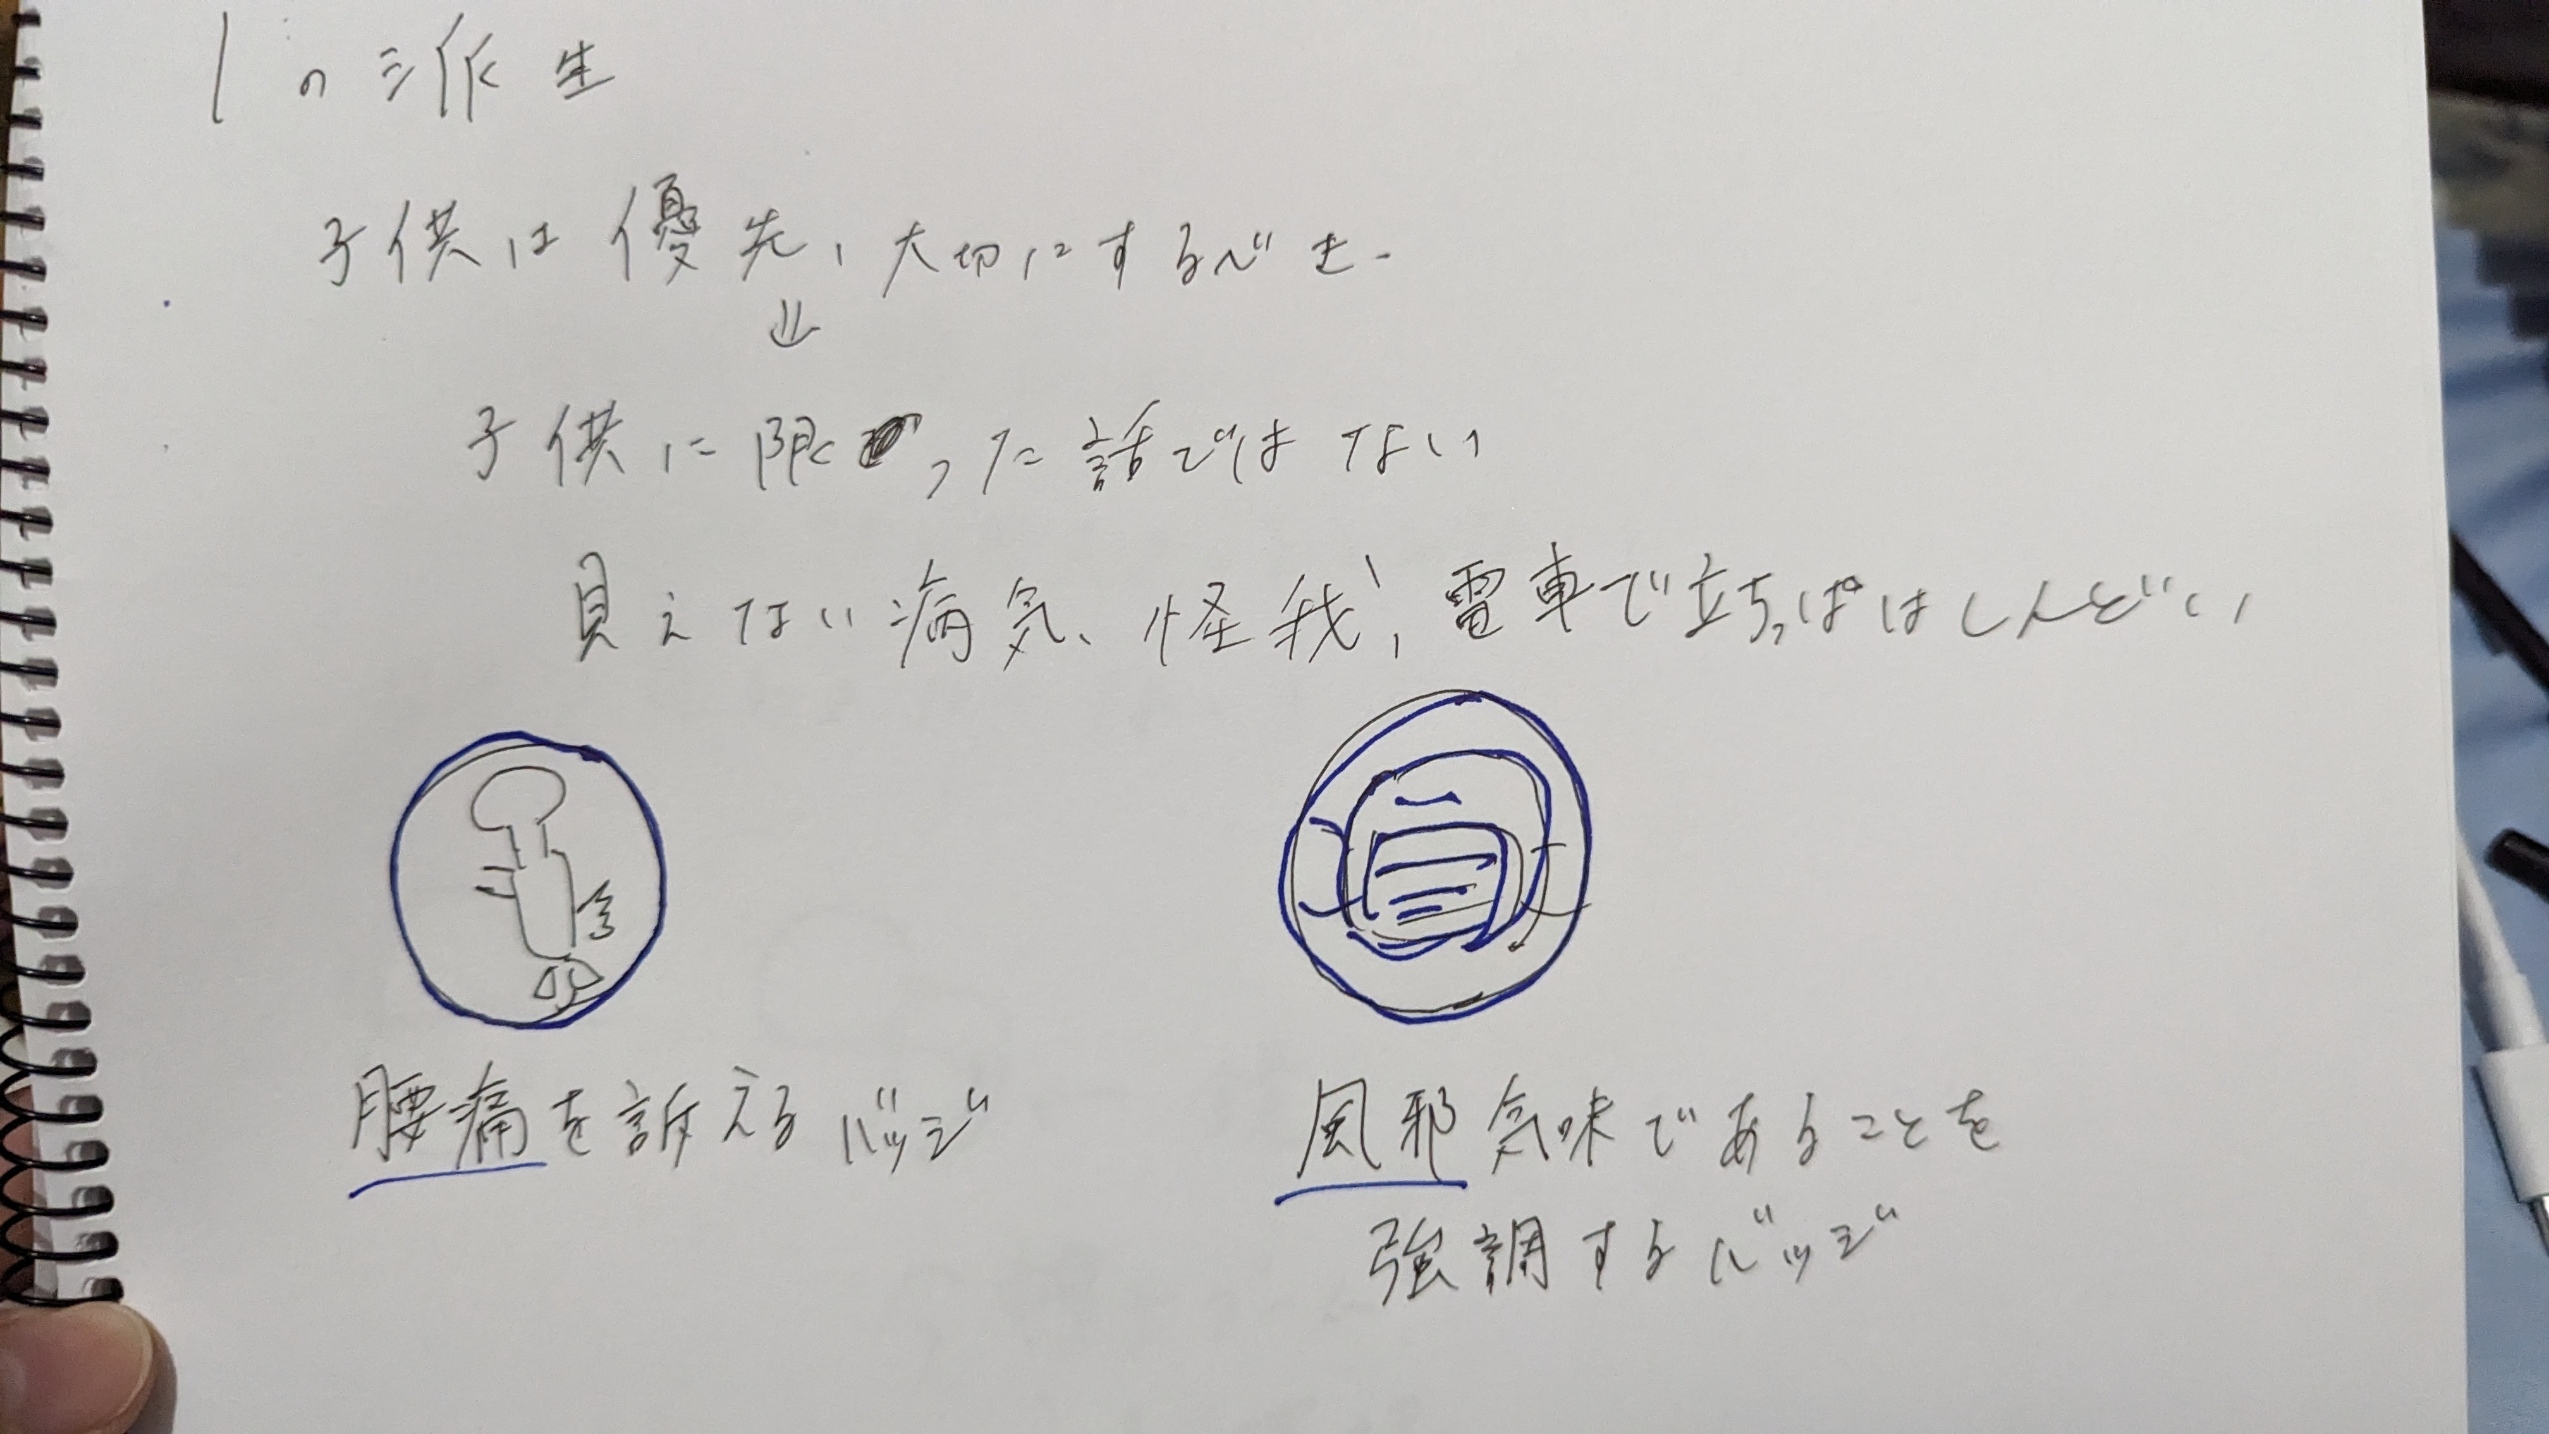 1の派生
子供は優先、大切にするべき.
⇓
子供に限った話ではない
見えない病気、怪我、電車で立ちっぱはしんどい
腰痛を訴えるバッジ
風邪気味であることを
強調するバッジ